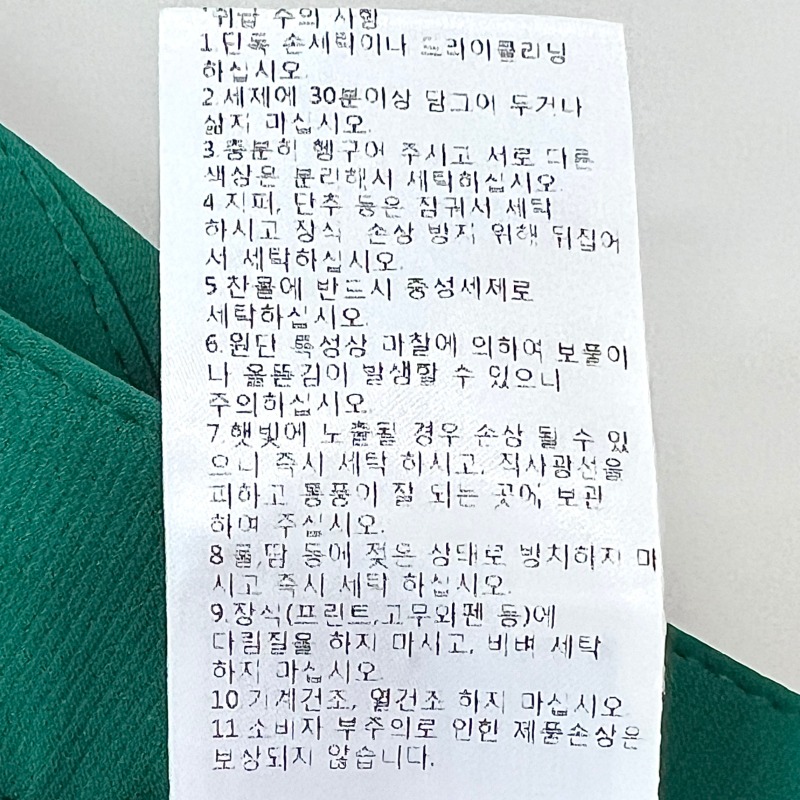 취급 주의 사항
1.단독 손세탁이나 드라이클리닝
하십시오.
2.세제에 30분이상 담그어 두거나
삶지 마십시오.
3.충분히 헹구어 주시고 서로 다른
색상은 분리해서 세탁하십시오.
4.지퍼, 단추 등은 잠궈서 세탁
하시고 장식 손상 방지 위해 뒤집어
서 세탁하십시오.
5.찬물에 반드시 중성세제로
세탁하십시오.
6.원단 특성상 마찰에 의하여 보풀이
나 올뜯김이 발생할 수 있으니
주의하십시오.
7.햇빛에 노출될 경우 손상 될 수 있
으니 즉시 세탁 하시고, 직사광선을
피하고 통풍이 잘 되는 곳에 보관
하여 주십시오.
8.물,땀 등에 젖은 상태로 방치하지 마
시고 즉시 세탁 하십시오.
9.장식(프린트,고무와펜 등)에
다림질을 하지 마시고, 비벼 세탁
하지 마십시오.
10.기계건조, 열건조 하지 마십시오.
11.소비자 부주의로 인한 제품손상은
보상되지 않습니다.